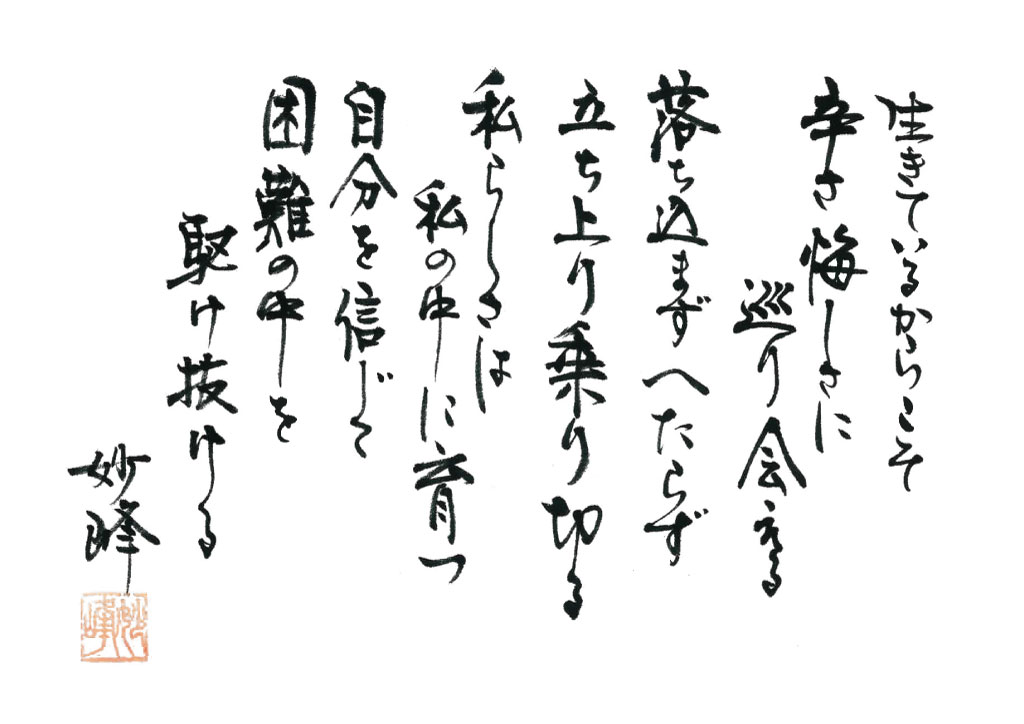 生きているからこそ
辛さ悔しさに
巡り会える
落ち込まずへたらず
立ち上り乗り切る
私らしさは
私の中に育つ
自分を信じて
困難の中を
駆け抜ける
妙峰
妙峰